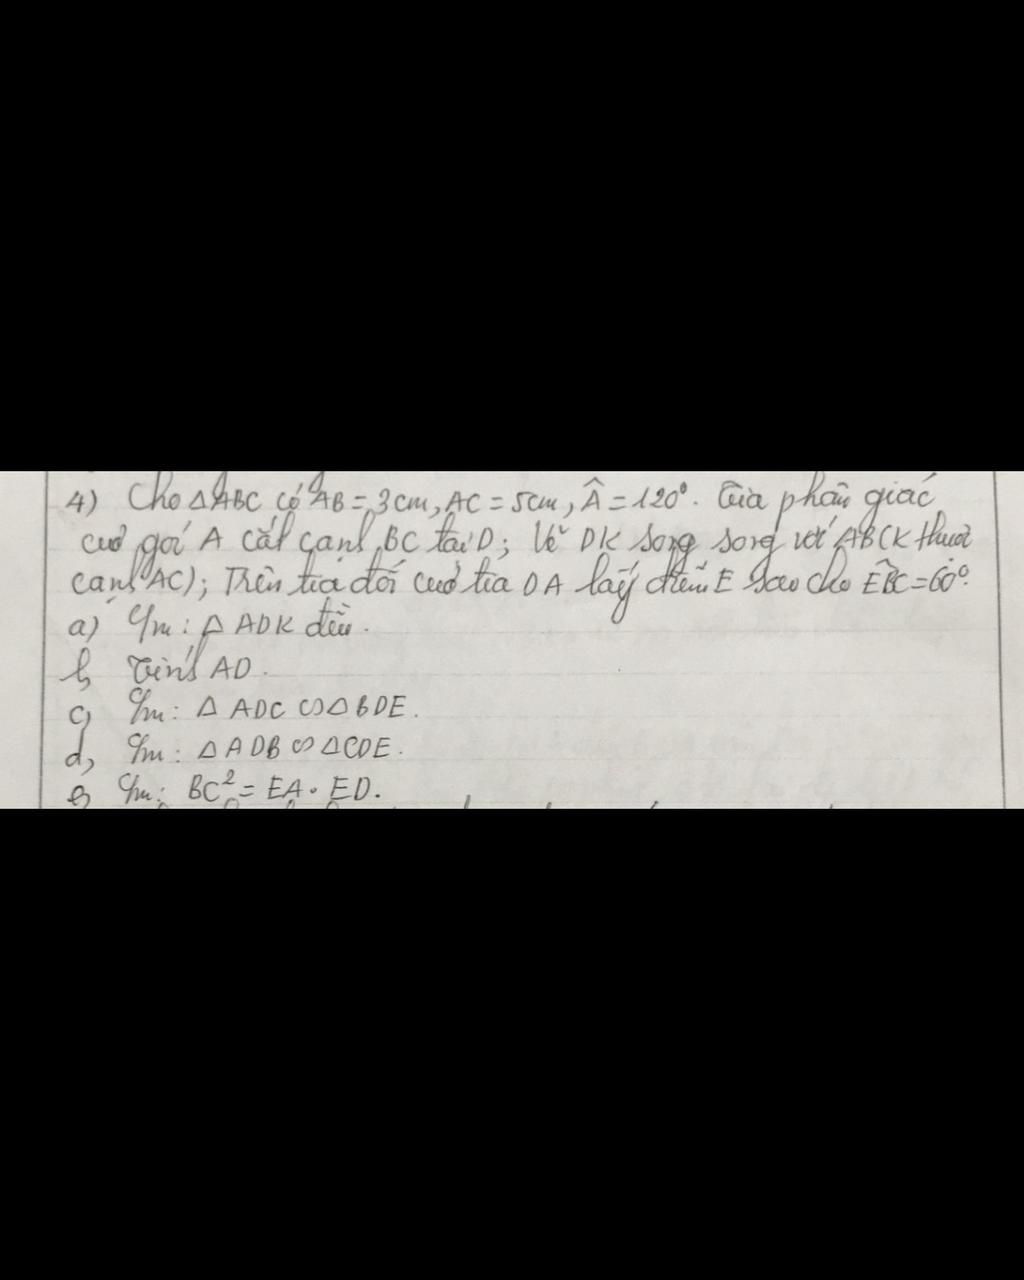 4) Cho △ABC có AB = 3cm, AC = 5cm, Â = 120°. Tia phân giác
của góc A cắt cạnh BC tại D; Vẽ DK song song với AB (K thuộc
cạnh AC); Trên tia đối của tia DA lấy điểm E sao cho EBC = 60°.
a) C/m: △ ADK đều.
b, Tính AD.
c, C/m: △ ADC ∽ △ BDE.
d, C/m: △ ADB ∽ △CDE.
e, C/m: BC² = EA . ED.